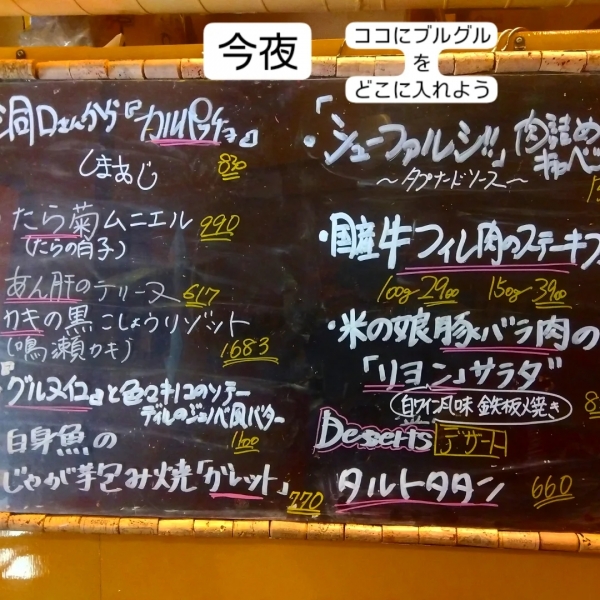 今夜
ココにブルグル
を
どこに入れよう
洞口さんから『カルパッチョ』
しまあじ 830
たら菊ムニエル 990
(たらの白子)
あん肝のテリーヌ 617
カキの黒こしょうリゾット
(鳴瀬カキ) 1683
グルヌイユと色々キノコのソテー
ディルのジェノベ風バター
1100
白身魚の
じゃが芋包み焼「ガレット」
770
・「シューファルシ!!」肉詰め
キャベツ
〜タプナードソース〜
・国産牛フィレ肉のステーキ
100g 2900 150g 3900
・米の娘豚バラ肉の
「リヨン」サラダ
白ワイン風味 鉄板焼き
Desserts デザート
タルトタタン 660